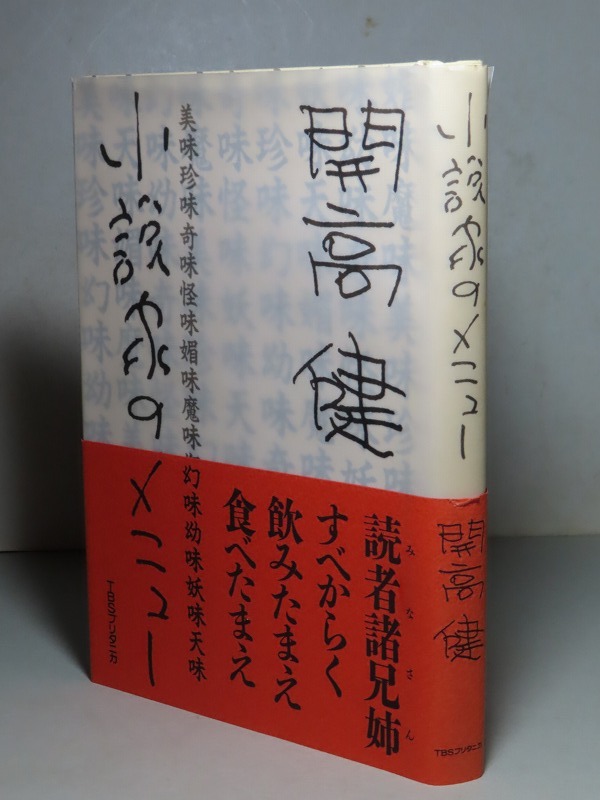 小説家のメニュー
開高健
TBSブリタニカ
開高 健
美味珍味奇味怪味媚味魔味幻味幼味妖味天味
小説家のメニュー
読者諸兄姉
みなさん
すべからく
飲みたまえ
食べたまえ
TBSブリタニカ